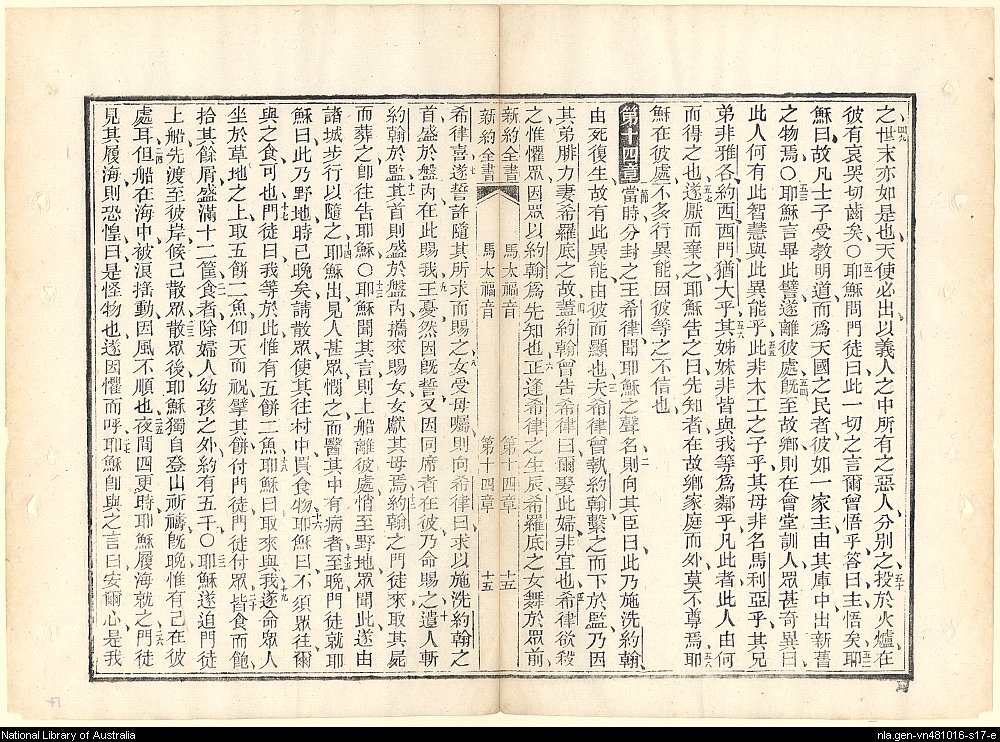 之世末亦如是也天使必出以義人之中所有之惡人分別之投於火爐在
彼有哀哭切齒矣〇耶穌問門徒曰此一切之言爾曾悟乎答曰主悟矣耶
穌曰故凡士子受教明道而爲天國之民者彼如一家主由其庫中出新舊
之物焉〇耶穌言畢此譬遂離彼處旣至故鄉則在會堂訓人眾甚奇異曰
此人何有此智慧與此異能乎此非木工之子乎其母非名馬利亞乎其兄
弟非雅各約西西門猶大乎其姊妹非皆與我等爲鄰乎凡此者此人由何
而得之也遂厭而棄之耶穌告之曰先知者在故鄉家庭而外莫不尊焉耶
穌在彼處不多行異能因彼等之不信也
第十四章當時分封之王希律聞耶穌之聲名則向其臣曰此乃施洗約翰
由死復生故有此異能由彼而顯也夫希律曾執約翰繫之而下於監乃因
其弟腓力妻希羅底之故蓋約翰曾告希律曰爾娶此婦非宜也希律欲殺
之惟懼眾因眾以約翰爲先知也正逢希律之生辰希羅底之女舞於眾前
新約全書 馬太福音 第十四章 十五
新約全書 馬太福音 第十四章 十五
希律喜遂誓許隨其所求而賜之女受母囑則向希律曰求以施洗約翰之
首盛於盤內在此賜我王憂然因旣誓又因同席者在彼乃命賜之遣人斬
約翰於監其首則盛於盤內攜來賜女女獻其母焉約翰之門徒來取其屍
而葬之卽往告耶穌〇耶穌聞其言則上船離彼處悄至野地眾聞此遂由
諸城步行以隨之耶穌出見人甚眾憫之而醫其中有病者至晚門徒就耶
穌曰此乃野地時已晚矣請散眾使其往村中買食物耶穌曰不須眾往爾
與之食可也門徒曰我等於此惟有五餅二魚耶穌曰取來與我遂命眾人
坐於草地之上取五餅二魚仰天而祝擘其餅付門徒門徒付眾皆食而飽
拾其餘屑盛滿十二筐食者除婦人幼孩之外約有五千〇耶穌遂迫門徒
上船先渡至彼岸候己散眾散眾後耶穌獨自登山祈禱旣晚惟有己在彼
處耳但船在海中被浪搖動因風不順也夜間四更時耶穌履海就之門徒
見其履海則恐惶曰是怪物也遂因懼而呼耶穌卽與之言曰安爾心是我
National Library of Australia
nla.gen-vn481016-s17-e